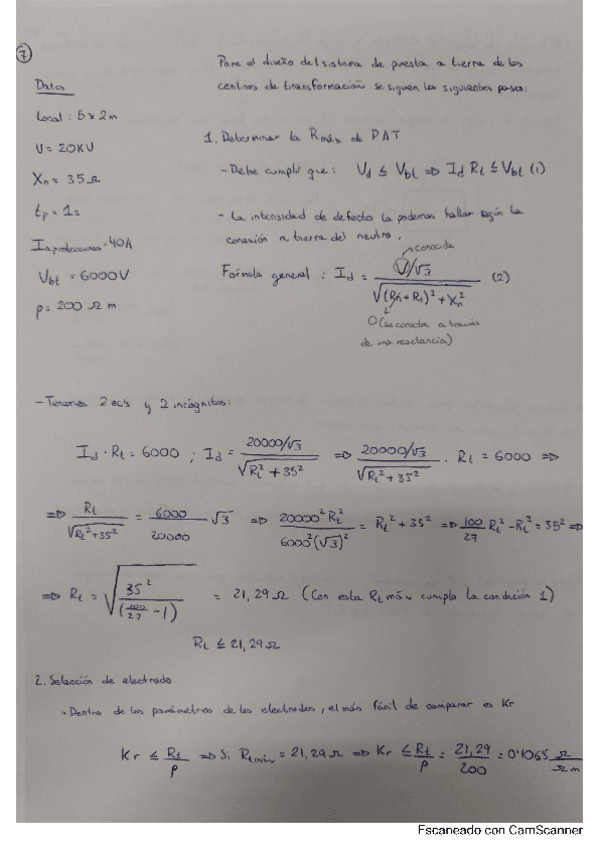 7
Datos
Local: 5 x 2 m
U = 20 KV
Xn = 35 Ω
tp = 1s
Ia protecciones = 40A
Vbt = 6000 V
ρ = 200 Ω m
Para el diseño del sistema de puesta a tierra de los
centros de transformación se siguen los siguientes pasos:
1. Determinar la Rmáx de PAT
- Debe cumplir que: Vd ≤ Vbt => Id Rt ≤ Vbt (1)
- La intensidad de defecto la podemos hallar según la
conexión a tierra del neutro.
conocida
Fórmula general: Id = (U/√3) / √((Rn + Rt)² + Xn²) (2)
0 (se conecta a través
de una reactancia)
- Tenemos 2 ec's y 2 incógnitas:
Id · Rt = 6000 ; Id = (20000/√3) / √(Rt² + 35²) => (20000/√3) / √(Rt² + 35²) · Rt = 6000 =>
=> Rt / √(Rt² + 35²) = 6000 / 20000 √3 => 20000² Rt² / 6000² (√3)² = Rt² + 35² => 100/27 Rt² - Rt² = 35² =>
=> Rt = √(35² / (100/27 - 1)) = 21,29 Ω (Con esta Rt máx cumplo la condición 1)
Rt ≤ 21,29 Ω
2. Selección de electrodo
- Dentro de los parámetros de los electrodos, el más fácil de comparar es Kr
Kr ≤ Rt/ρ => Si Rt máx = 21,29 Ω => Kr ≤ Rt/ρ = 21,29/200 = 0'1065 Ω/Ωm
Escaneado con CamScanner